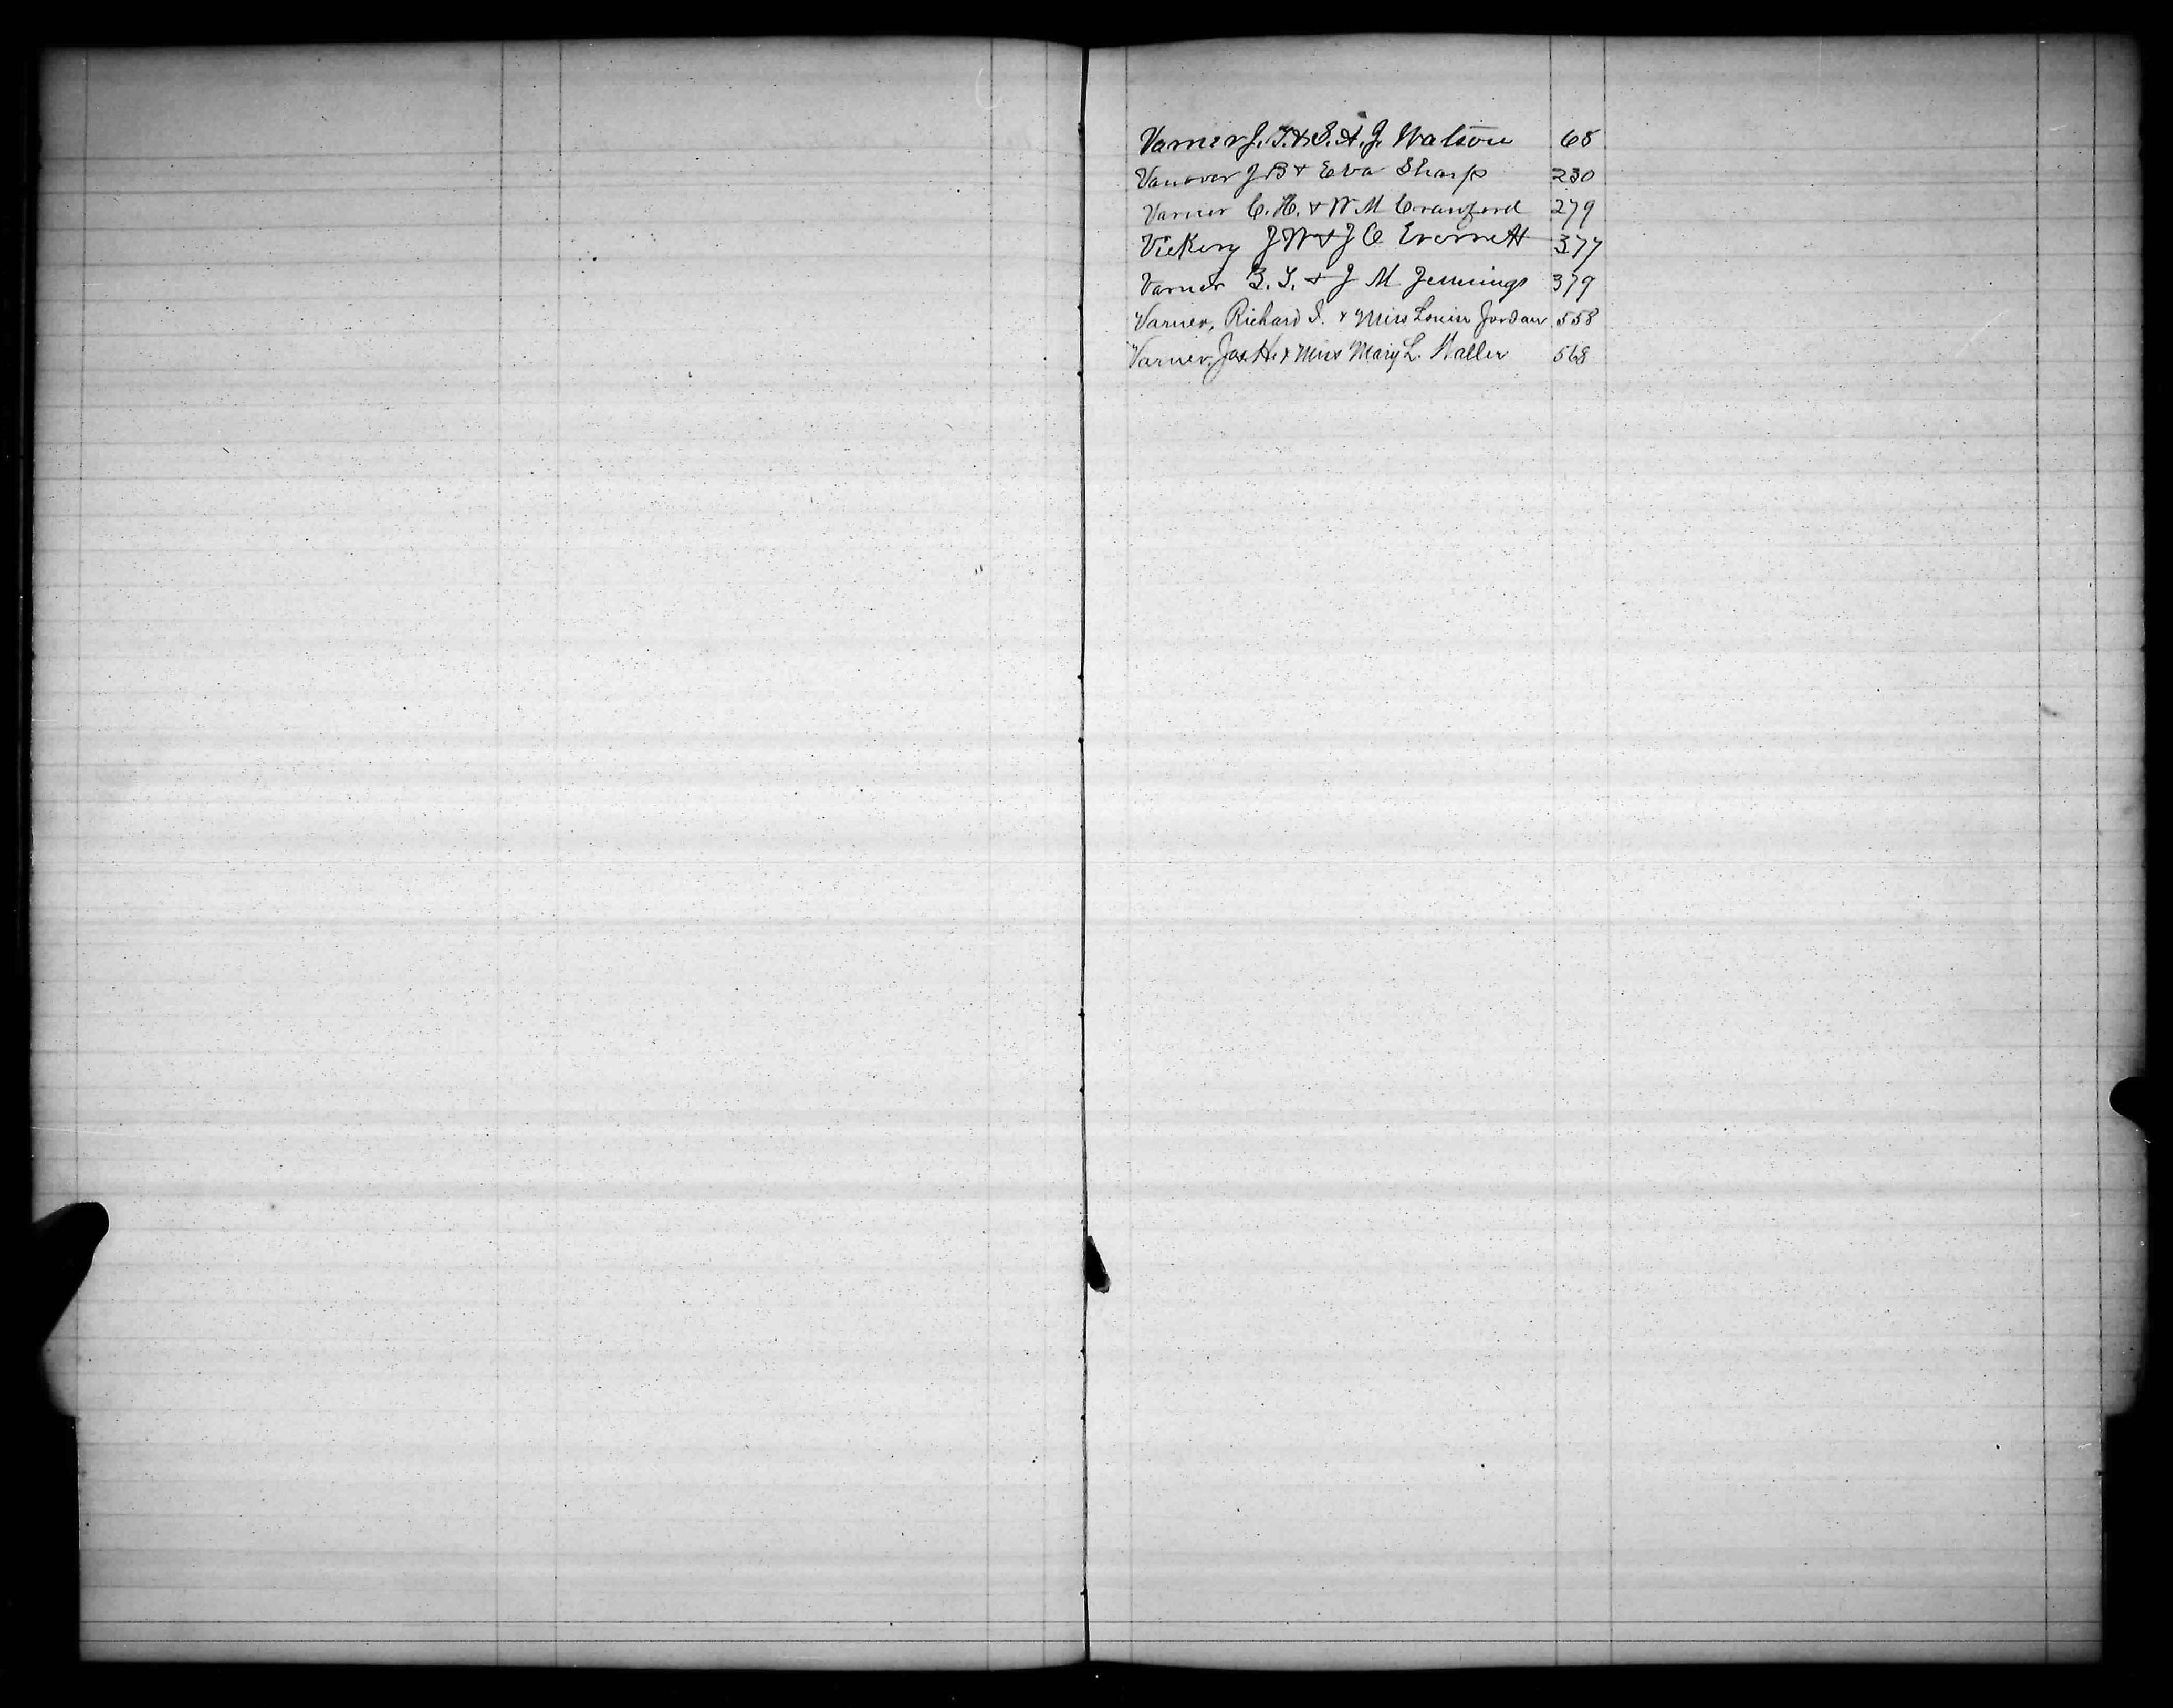 Varner J. T. & S. A. J. Watson 68
Vanover J B & Eva Sharp 230
Varner C. H. & W M Crawford 279
Vickery J W & J C Evernett 377
Varner B. T. & J M Jennings 379
Varner, Richard I. & Miss Louise Jordan 558
Varner, Jas. H. & Miss Mary L. Waller 568